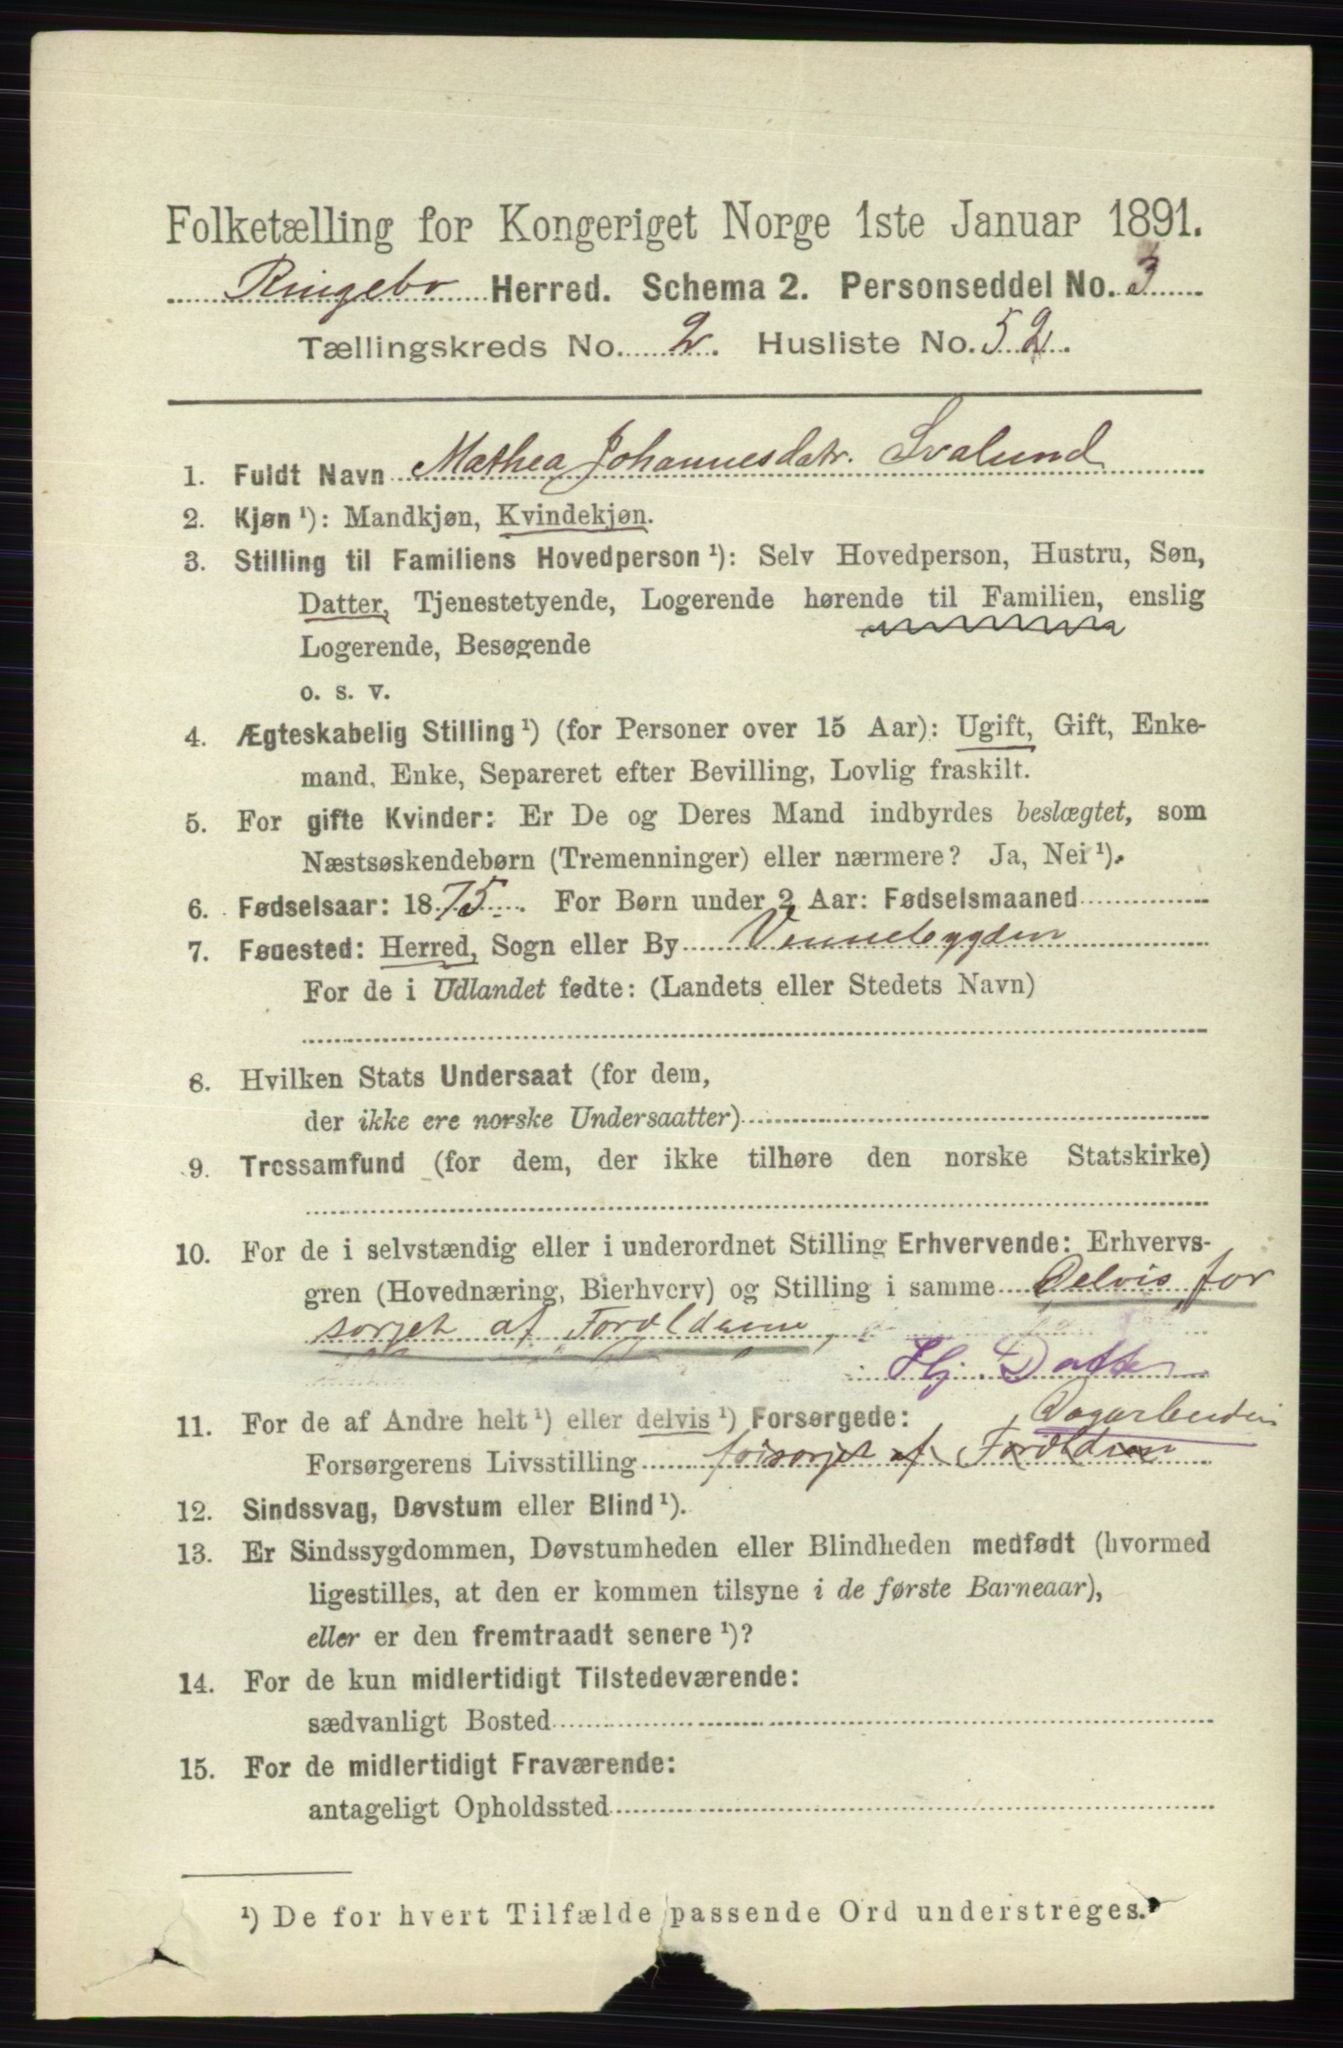 Folketælling for Kongeriget Norge 1ste Januar 1891.
Ringebo Herred. Schema 2. Personseddel No. 3
Tællingskreds No. 2. Husliste No. 52.
1. Fuldt Navn Mathea Johannesdatr. Svalund
2. Kjøn ¹): Mandkjøn, Kvindekjøn.
3. Stilling til Familiens Hovedperson ¹): Selv Hovedperson, Hustru, Søn,
Datter, Tjenestetyende, Logerende hørende til Familien, enslig
Logerende, Besøgende
o. s. v.
4. Ægteskabelig Stilling ¹) (for Personer over 15 Aar): Ugift, Gift, Enke-
mand, Enke, Separeret efter Bevilling, Lovlig fraskilt.
5. For gifte Kvinder: Er De og Deres Mand indbyrdes beslægtet, som
Næstsøskendebørn (Tremenninger) eller nærmere? Ja, Nei ¹).
6. Fødselsaar: 1875. For Børn under 2 Aar: Fødselsmaaned
7. Fødested: Herred, Sogn eller By Vennebygden
For de i Udlandet fødte: (Landets eller Stedets Navn)
8. Hvilken Stats Undersaat (for dem,
der ikke ere norske Undersaatter)
9. Trossamfund (for dem, der ikke tilhøre den norske Statskirke)
10. For de i selvstændig eller i underordnet Stilling Erhvervende: Erhvervs-
gren (Hovednæring, Bierhverv) og Stilling i samme Delvis for
sorjet af Foræeldrene,
Hj. Datter
11. For de af Andre helt ¹) eller delvis ¹) Forsørgede: , Dagarbeider
Forsørgerens Livsstilling forsorjet af Foræeldren
12. Sindssvag, Døvstum eller Blind ¹).
13. Er Sindssygdommen, Døvstumheden eller Blindheden medfødt (hvormed
ligestilles, at den er kommen tilsyne i de første Barneaar),
eller er den fremtraadt senere ¹)?
14. For de kun midlertidigt Tilstedeværende:
sædvanligt Bosted
15. For de midlertidigt Fraværende:
antageligt Opholdssted
¹) De for hvert Tilfælde passende Ord understreges.